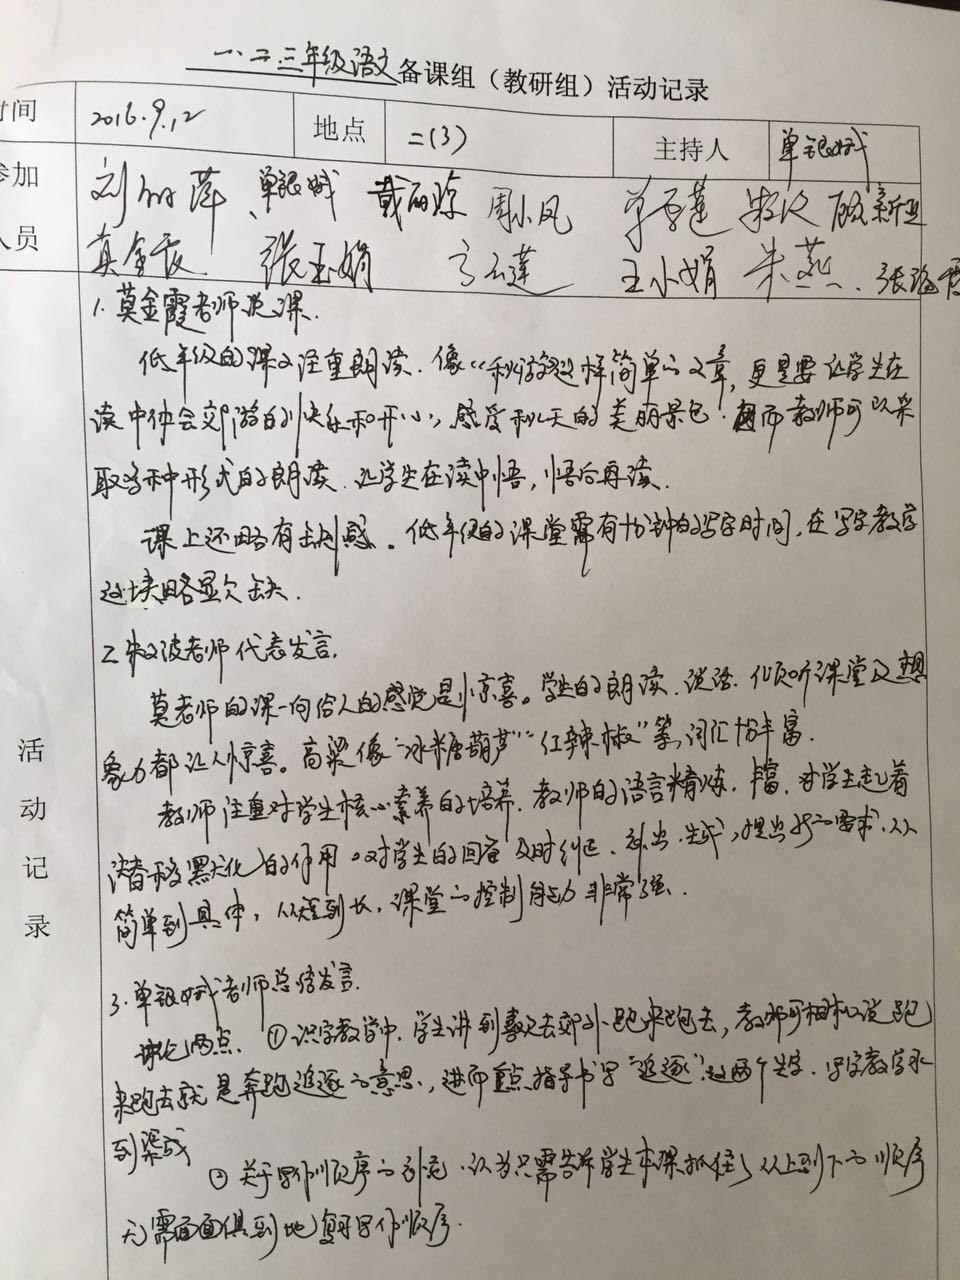 一、二、三年级语文备课组（教研组）活动记录
时间 2016.9.12 地点 二(3) 主持人 单银娥
参加人员 刘 萍 单银娥 戴丽 周小凤 莲 顾新
莫金霞 张玉娟 云莲 王小娟 朱燕 张
活动记录
1. 莫金霞老师说课.
低年级的课文注重朗读.像《秋游》这样简单的文章,更是要让学生在
读中体会郊游的快乐和开心,感受秋天的美丽景色.而教师可以采
取各种形式的朗读.让学生在读中悟,悟后再读.
课上还略有缺憾。低年级的课堂需有十分钟的写字时间,在写字教学
这块略显欠缺.
2. 波老师代表发言.
莫老师的课一向给人的感觉是小惊喜。学生的朗读.说话.倾听课堂及想
象力都让人惊喜。高粱像“冰糖葫芦”“红辣椒”等,词汇十分丰富.
教师注重对学生核心素养的培养.教师的语言精炼.丰富.对学生起着
潜移默化的作用。对学生的回答及时纠正.补充.生成,提出新的要求.从
简单到具体,从短到长,课堂的控制能力非常强.
3. 单银娥老师总结发言.
两点. ①识字教学中.学生讲到喜欢去郊外跑来跑去,教师可相机说跑
来跑去就是奔跑追逐的意思,进而重点指导书写“追逐”这两个生字.写字教学水
到渠成
②关于写作顺序的 .认为只需告诉学生本课抓住了从上到下的顺序
无需面面俱到地复习写作顺序.